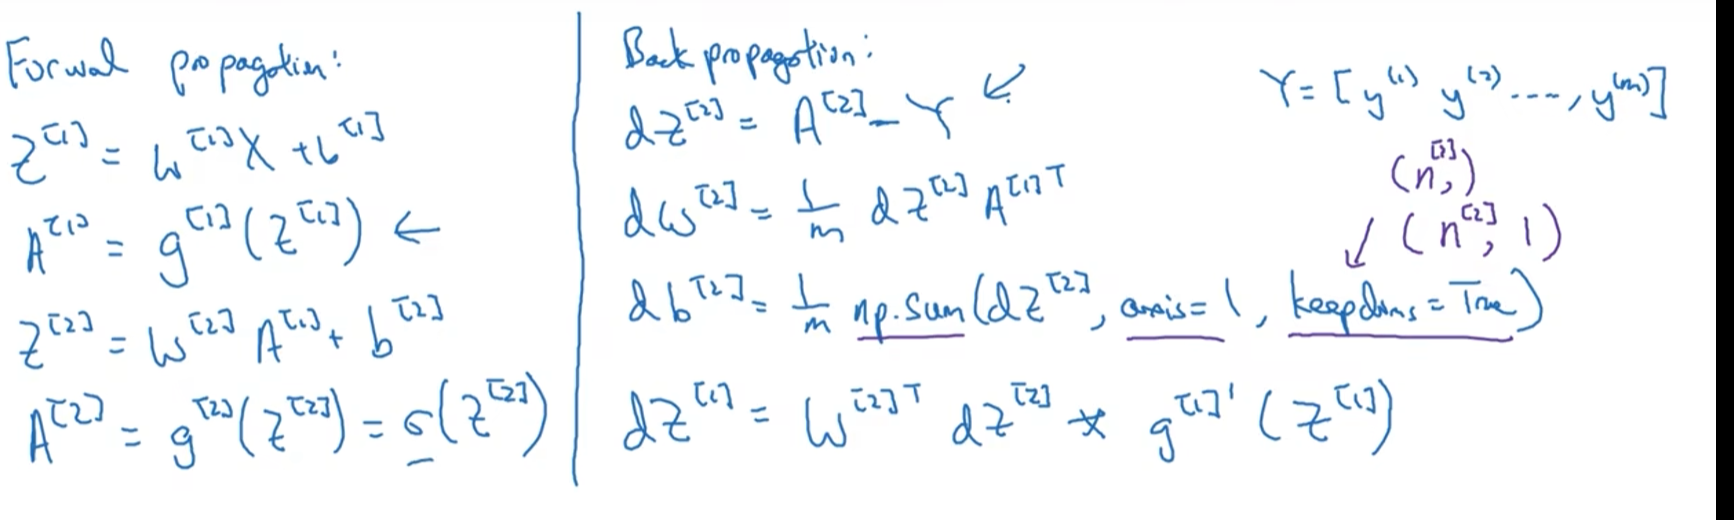 Forwal propagation:
Z^[1] = W^[1]X + b^[1]
A^[1] = g^[1](Z^[1]) ←
Z^[2] = W^[2] A^[1] + b^[2]
A^[2] = g^[2](Z^[2]) = σ(Z^[2])
Back propagation:
dZ^[2] = A^[2] - Y ↙
dW^[2] = 1/m dZ^[2] A^[1]T
db^[2] = 1/m np.sum(dZ^[2], axis=1, keepdims=True)
dZ^[1] = W^[2]T dZ^[2] * g^[1]'(Z^[1])
Y = [y^(1) y^(2) ...., y^(m)]
(n^[2],)
↙ (n^[2], 1)